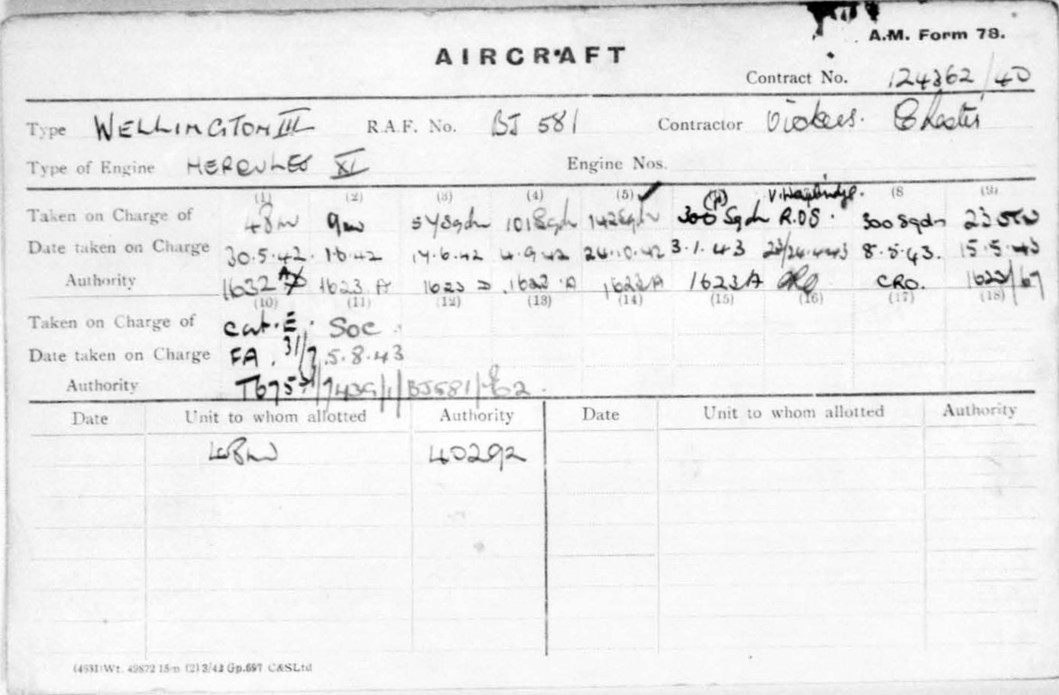 A.M. Form 78.
AIRCRAFT
Contract No. 124362/40
Type WELLINGTON III R.A.F. No. BJ 581 Contractor Vickers. Chester
Type of Engine HERCULES XI Engine Nos.
(1) (2) (3) (4) (5) (8 (9)
Taken on Charge of 48 MU 9 MU 57 Sqdn 101 Sqdn 142 Sqdn 300 Sqdn R.O.S. 300 Sqdn 23 OTU
Date taken on Charge 30.5.42. 1.6.42 14.6.42 4.9.42 24.10.42 3.1.43 8.5.43. 15.5.43
Authority 1632 1623 A 1623 D 1632 A 1623 A 1623 A CRO. 1623/67
(10) (11) (12) (13) (14) (15) (16) (17) (18)
Taken on Charge of cat. E. Soc
Date taken on Charge FA. 31/7 5.8.43
Authority BJ581
Date Unit to whom allotted Authority Date Unit to whom allotted Authority
48 MU 40292
Gp.697 C&SLtd